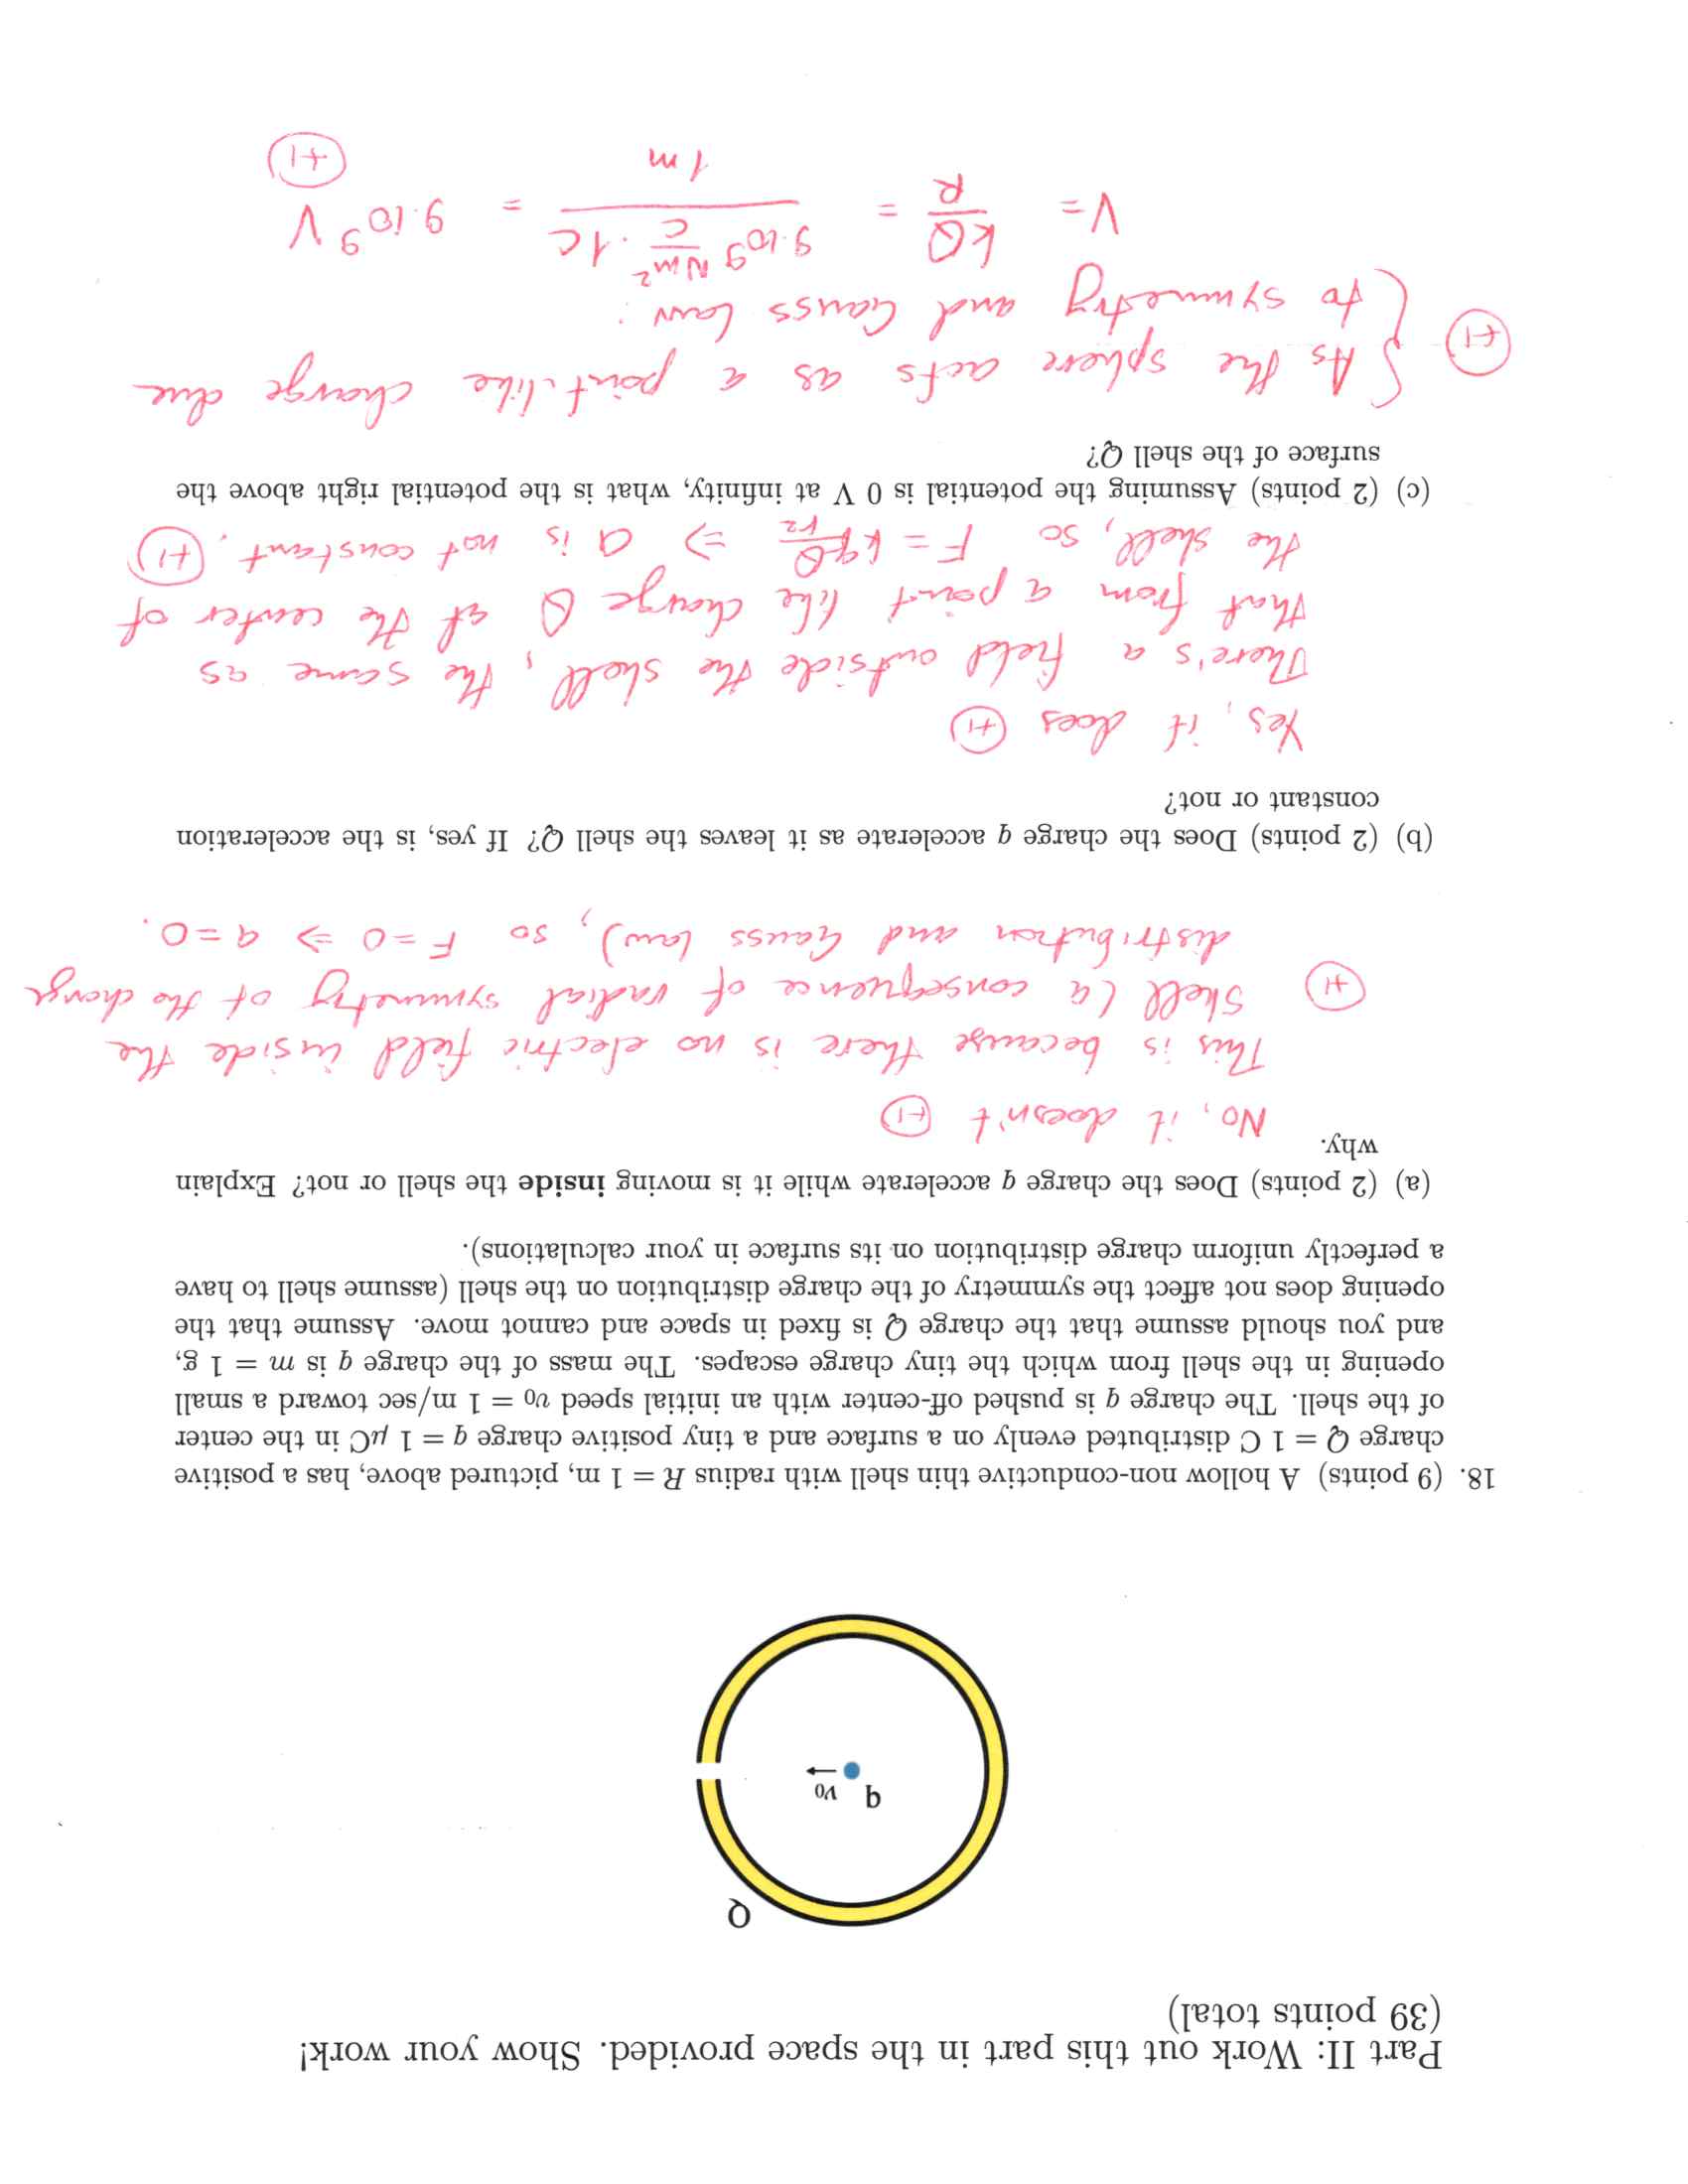 Part II: Work out this part in the space provided. Show your work!
(39 points total)
Q
q v₀
18. (9 points) A hollow non-conductive thin shell with radius R = 1 m, pictured above, has a positive
charge Q = 1 C distributed evenly on a surface and a tiny positive charge q = 1 μC in the center
of the shell. The charge q is pushed off-center with an initial speed v₀ = 1 m/sec toward a small
opening in the shell from which the tiny charge escapes. The mass of the charge q is m = 1 g,
and you should assume that the charge Q is fixed in space and cannot move. Assume that the
opening does not affect the symmetry of the charge distribution on the shell (assume shell to have
a perfectly uniform charge distribution on its surface in your calculations).
(a) (2 points) Does the charge q accelerate while it is moving inside the shell or not? Explain
why.
No, it doesn't +1
This is because there is no electric field inside the
+1 shell (a consequence of radial symmetry of the charge
distribution and Gauss law), so F = 0 ⇒ a = 0.
(b) (2 points) Does the charge q accelerate as it leaves the shell Q? If yes, is the acceleration
constant or not?
Yes, it does +1
There's a field outside the shell, the same as
that from a point like charge Q at the center of
the shell, so F = kqQ/r² ⇒ a is not constant. +1
(c) (2 points) Assuming the potential is 0 V at infinity, what is the potential right above the
surface of the shell Q?
+1 { As the sphere acts as a point-like charge due
to symmetry and Gauss law:
V = kQ/R = 9·10⁹ Nm²/C · 1C / 1m = 9·10⁹ V
+1